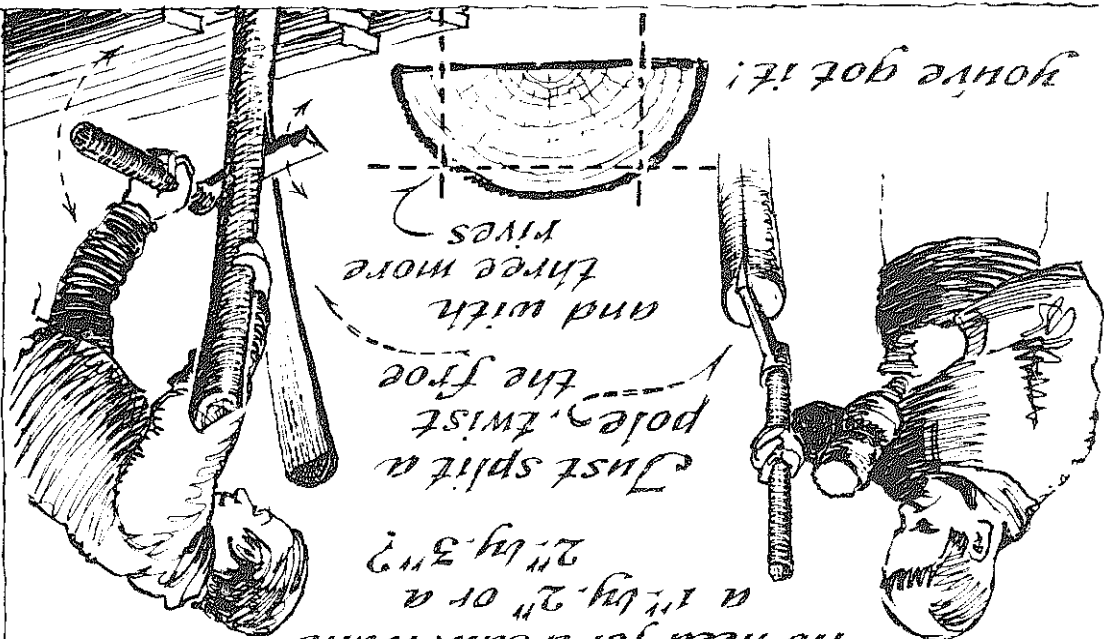 need for a
a 1".by.2" or a
2".by.3"?
Just split a
pole, twist
the froe
and with
three more
rives
you've got it!